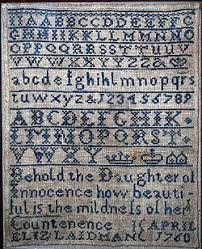 AABBCCDDEEFFG
GHHIIKKLLMMNNO
OPPQQRRSSTTUUV
VWWXXYYZZ
abcdefghiklmnopqrs
tuwxyz 123456789
ABCDEFGHIK
LMNOPQRST
VWXY
Behold the Daughter of
Innocence how beauti
ful is the mildness of her
Countenence APRIL
ELIZ LAIDMAN 1760